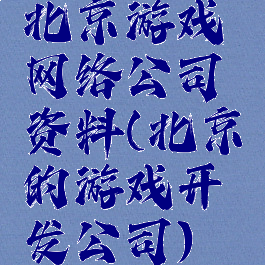 北京游戏
网络公司
资料(北京
的游戏开
发公司)